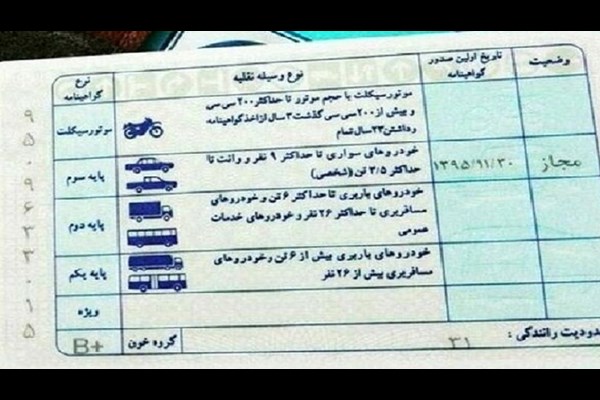 وضعیت
تاریخ اولین صدور
گواهینامه
نوع وسیله نقلیه
نوع
گواهینامه
موتورسیکلت با حجم موتور تا حداکثر ۲۰۰ سی سی
و بیش از ۲۰۰ سی سی گذشت ۳ سال از اخذ گواهینامه
وداشتن ۲۳ سال تمام
موتورسیکلت
خودروهای سواری تا حداکثر ۹ نفر و وانت تا
حداکثر ۳/۵ تن (شخصی)
پایه سوم
۱۳۹۵/۹۱/۳۰
مجاز
خودروهای باربری تا حداکثر ۶ تن و خودروهای
مسافربری تا حداکثر ۲۶ نفر و خودروهای خدمات
عمومی
پایه دوم
خودروهای باربری بیش از ۶ تن و خودروهای
مسافربری بیش از ۲۶ نفر
پایه یکم
ویژه
دودیت رانندگی :
۳۱
گروه خون
B+
۹
۵
۰
۹
۶
۳
۳
۰
۱
۵